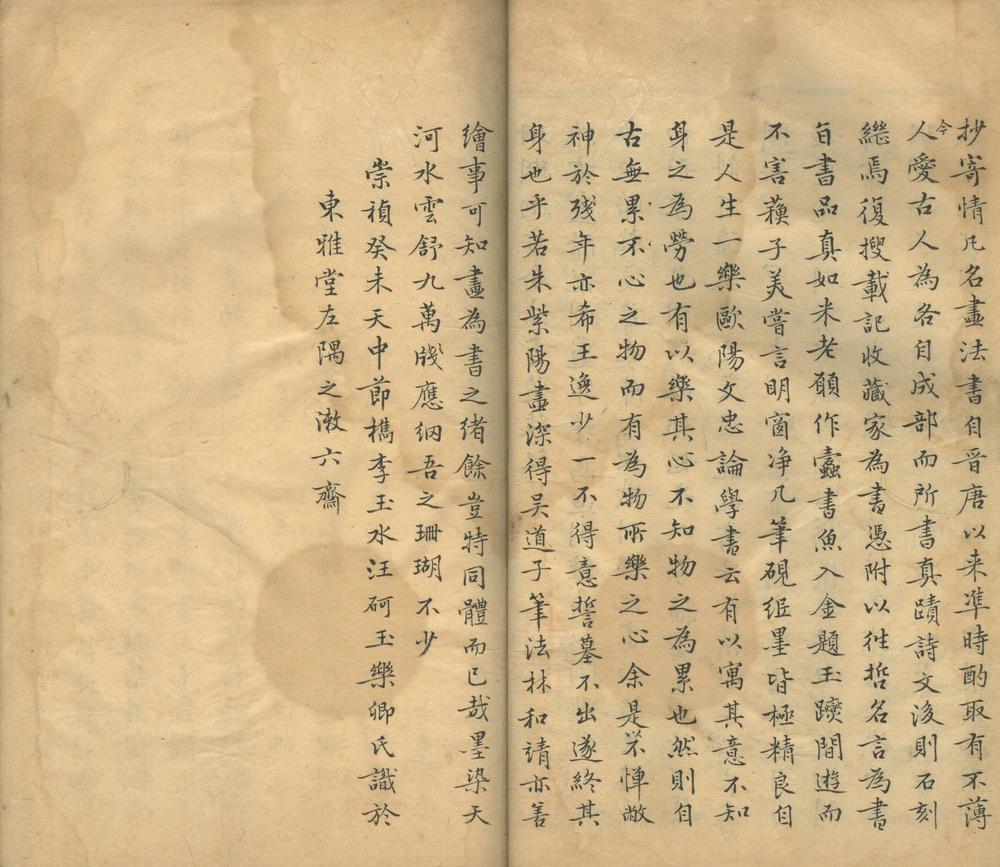 抄寄情凡名畫法書自晋唐以来準時酌取有不薄
今人愛古人為各自成部而所書真蹟詩文後則石刻
継焉復搜載記收蔵家為書憑附以往哲名言為書
旨書品真如米老願作蠹書魚入金題玉躞間遊而
不害蘓子美嘗言明窗净几筆硯紙墨皆極精良自
是人生一樂歐陽文忠論學書云有以寓其意不知
身之為勞也有以樂其心不知物之為累也然則自
古無累不心之物而有為物所樂之心余是以不憚敝
神於殘年亦希王逸少一不得意誓墓不出遂終其
身也乎若朱紫陽畫深得吴道子筆法林和靖亦善
繪事可知畫為書之緒餘豈特同體而已哉墨染天
河水雲舒九萬牋應網吾之珊瑚不少
崇禎癸未天中節檇李玉水汪砢玉樂卿氏識於
東雅堂左隅之漱六齋